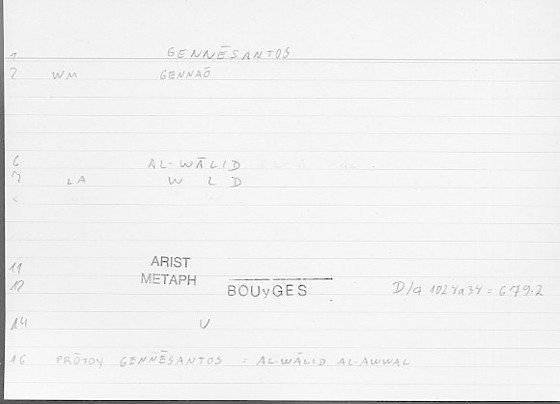 1 GENNĒSANTOS
2 WM GENNAŌ
6 AL-WĀLID
7 LA W L D
11 ARIST
METAPH
12 BOUyGES D/a 1024a34 = 679.2
14 U
16 PRŌTOY GENNĒSANTOS : AL-WĀLID AL-AWWAL